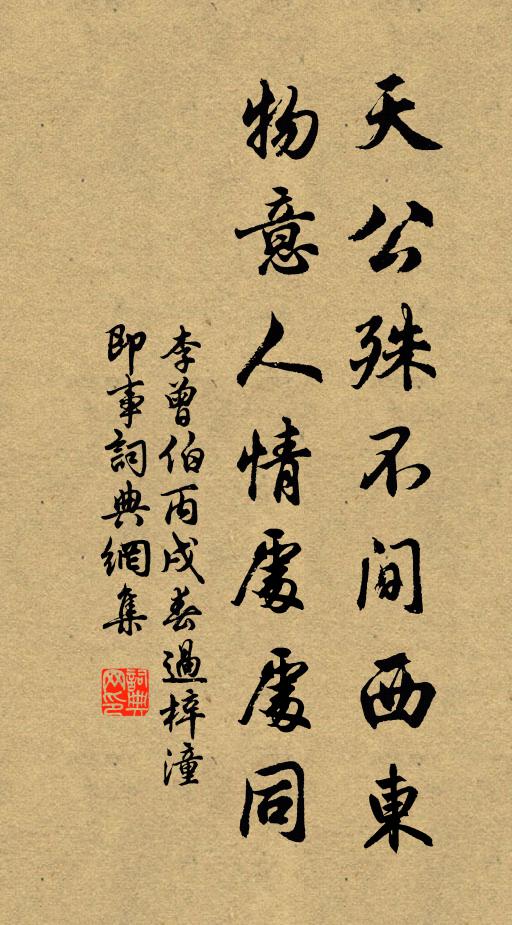 天公殊不间西東
物意人情處處同
李曾伯丙戌春過梓潼
即事詞典網集
詞典网印